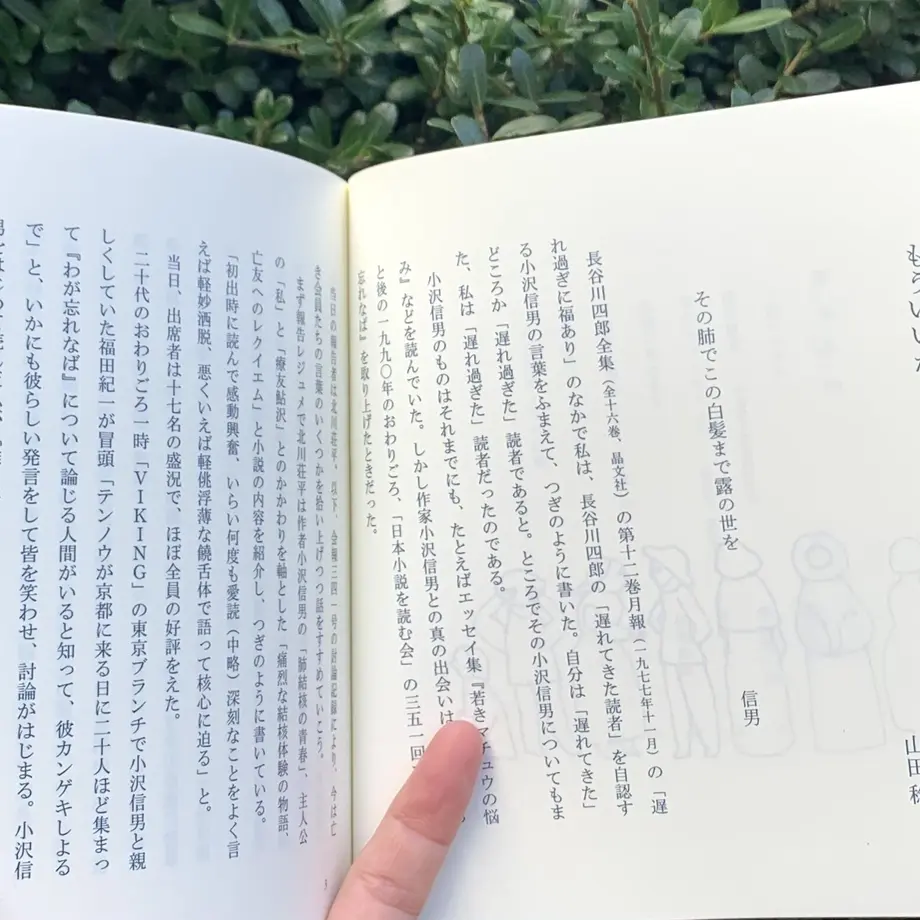 もらい
山田稔
その肺でこの白髪まで露の世を
信男
長谷川四郎全集（全十六巻、晶文社）の第十二巻月報（一九七七年十一月）の「遅
れ過ぎに福あり」のなかで私は、長谷川四郎の「遅れてきた読者」を自認す
る小沢信男の言葉をふまえて、つぎのように書いた。自分は「遅れてきた」
どころか「遅れ過ぎた」読者であると。ところでその小沢信男についてもま
た、私は「遅れ過ぎた」読者だったのである。
小沢信男のものはそれまでにも、たとえばエッセイ集『若きマチュウの悩
み』などを読んでいた。しかし作家小沢信男との真の出会いは
と後の一九九〇年のおわりごろ、「日本小説を読む会」の三五一回
忘れなば』を取り上げたときだった。
当日の報告者は北川荘平。以下、会報三四一号の討論記録により、今は亡
き会員たちの言葉のいくつかを拾い上げつつ話をすすめていこう。
まず報告レジュメで北川荘平は作者小沢信男の「肺結核の青春」、主人公
の「私」と「療友鮎沢」とのかかわりを軸とした「痛烈な結核体験の物語、
亡友へのレクイエム」と小説の内容を紹介し、つぎのように書いている。
「初出時に読んで感動興奮、いらい何度も愛読（中略）深刻なことをよく言
えば軽妙洒脱、悪くいえば軽佻浮薄な饒舌体で語って核心に迫る」と。
当日、出席者は十七名の盛況で、ほぼ全員の好評をえた。
二十代のおわりごろ一時「VIKING」の東京ブランチで小沢信男と親
しくしていた福田紀一が冒頭「テンノウが京都に来る日に二十人ほど集まっ
て『わが忘れなば』について論じる人間がいると知って、彼カンゲキしよる
で」と、いかにも彼らしい発言をして皆を笑わせ、討論がはじまる。小沢信